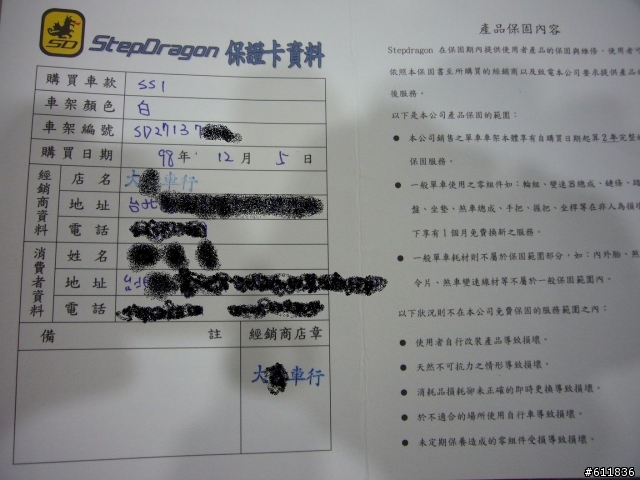 SD
StepDragon 保證卡資料
購買車款 SS1
車架顏色 白
車架編號 SD27137
購買日期 98年 12月 5日
經銷商資料
店名 大 車行
地址 台北
電話
消費者資料
姓名
地址
電話
備註
經銷商店章
大 車行
產品保固內容
Stepdragon 在保固期內提供使用者產品的保固與維修,使用者
依照本保固書至所購買的經銷商以及致電本公司要求提供產品
後服務。
以下是本公司產品保固的範圍:
● 本公司銷售之單車車架本體享有自購買日期起算2年完整
保固服務。
● 一般單車使用之零組件如:輪組、變速器總成、鏈條、
盤、坐墊、煞車總成、手把、握把、坐桿等在非人為損
下享有1個月免費換新之服務。
● 一般單車耗材則不屬於保固範圍部分,如:內外胎、
令片、煞車變速線材等不屬於一般保固範圍內。
以下狀況則不在本公司免費保固的服務範圍之內:
● 使用者自行改裝產品導致損壞。
● 天然不可抗力之情形導致損壞。
● 消耗品損耗卻未正確的即時更換導致損壞。
● 於不適合的場所使用自行車導致損壞。
● 未定期保養造成的零組件受損導致損壞。
#611836